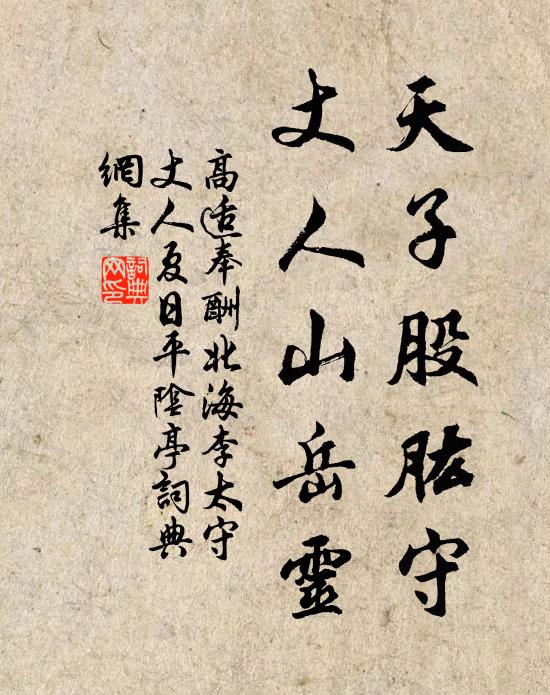 天子股肱守
丈人山岳靈
高适奉酬北海李太守
丈人夏日平陰亭詞典
網集
詞典
网印